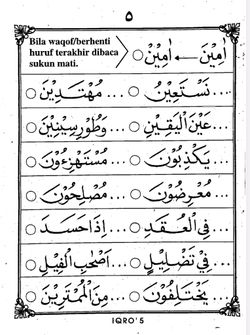 ٥
Bila waqof/berhenti
huruf terakhir dibaca
sukun mati.
اٰمِيْنَ ← اٰمِيْنْ ○
نَسْتَعِيْنُ ○ ... مُهْتَدِيْنَ ○ ...
عَيْنَ الْيَقِيْنِ ○ ... وَطُوْرِ سِيْنِيْنَ ○ ...
يَكْذِبُوْنَ ○ ... مُسْتَهْزِءُوْنَ ○ ...
مُعْرِضُوْنَ ○ ... مُصْلِحُوْنَ ○ ...
فِى الْعُقَدِ ○ ... اِذَا حَسَدَ ○ ...
فِيْ تَضْلِيْلٍ ○ ... اَصْحٰبِ الْفِيْلِ ○ ...
يَخْتَلِفُوْنَ ○ ... مِنَ الْمُمْتَرِيْنَ ○ ...
IQRO' 5